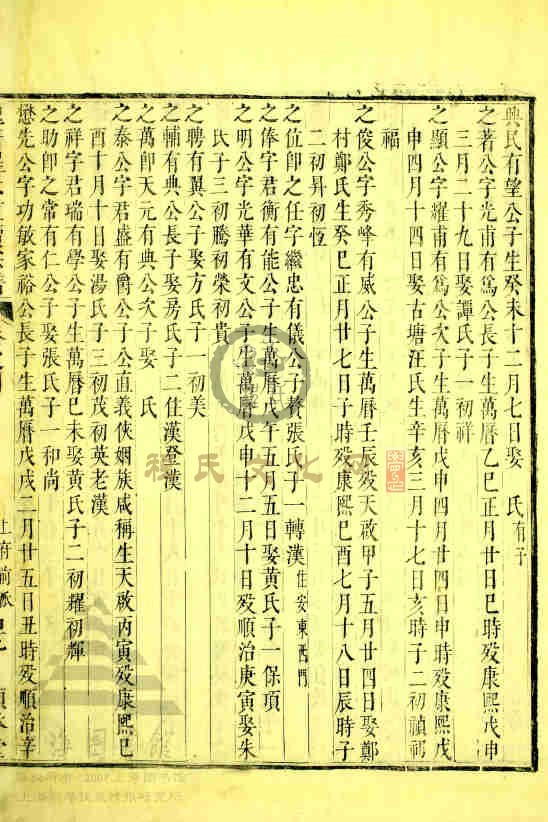 興民有望公子生癸未十二月七日娶　氏有子
之著公字光甫有爲公長子生萬曆乙巳正月廿日巳時殁康熙戊申
三月二十九日娶譚氏子一初祥
之顯公字耀甫有爲公次子生萬曆戊申四月廿四日申時殁康熙戊
申四月十四日娶古塘汪氏生辛亥三月十七日亥時子二初禎初
福
之俊公字秀峰有威公子生萬曆壬辰殁天啟甲子五月廿四日娶鄭
村鄭氏生癸巳正月廿七日子時殁康熙巳酉七月十八日辰時子
二初昇初恆
之位即之任字繼忠有儀公子贅張氏子一轉漢住安東西門
之俸字君衡有能公子生萬曆戊午五月五日娶黃氏子一保項
之明公字光華有文公子生萬曆戊申十二月十日殁順治庚寅娶朱
氏子三初騰初榮初貴
之聘有翼公子娶方氏子一初美
之輔有典公長子娶房氏子二住漢登漢
之萬即天元有典公次子娶　氏
之泰公字君盛有爵公子公直義俠姻族咸稱生天啟丙寅殁康熙巳
酉十月十日娶湯氏子三初茂初英老漢
之祥字君瑞有學公子生萬曆巳未娶黃氏子二初耀初輝
之助即之常有仁公子娶張氏子一和尚
懋先公字功敏家裕公長子生萬曆戊戌二月廿五日丑時殁順治辛
程氏文化网
上海圖書館